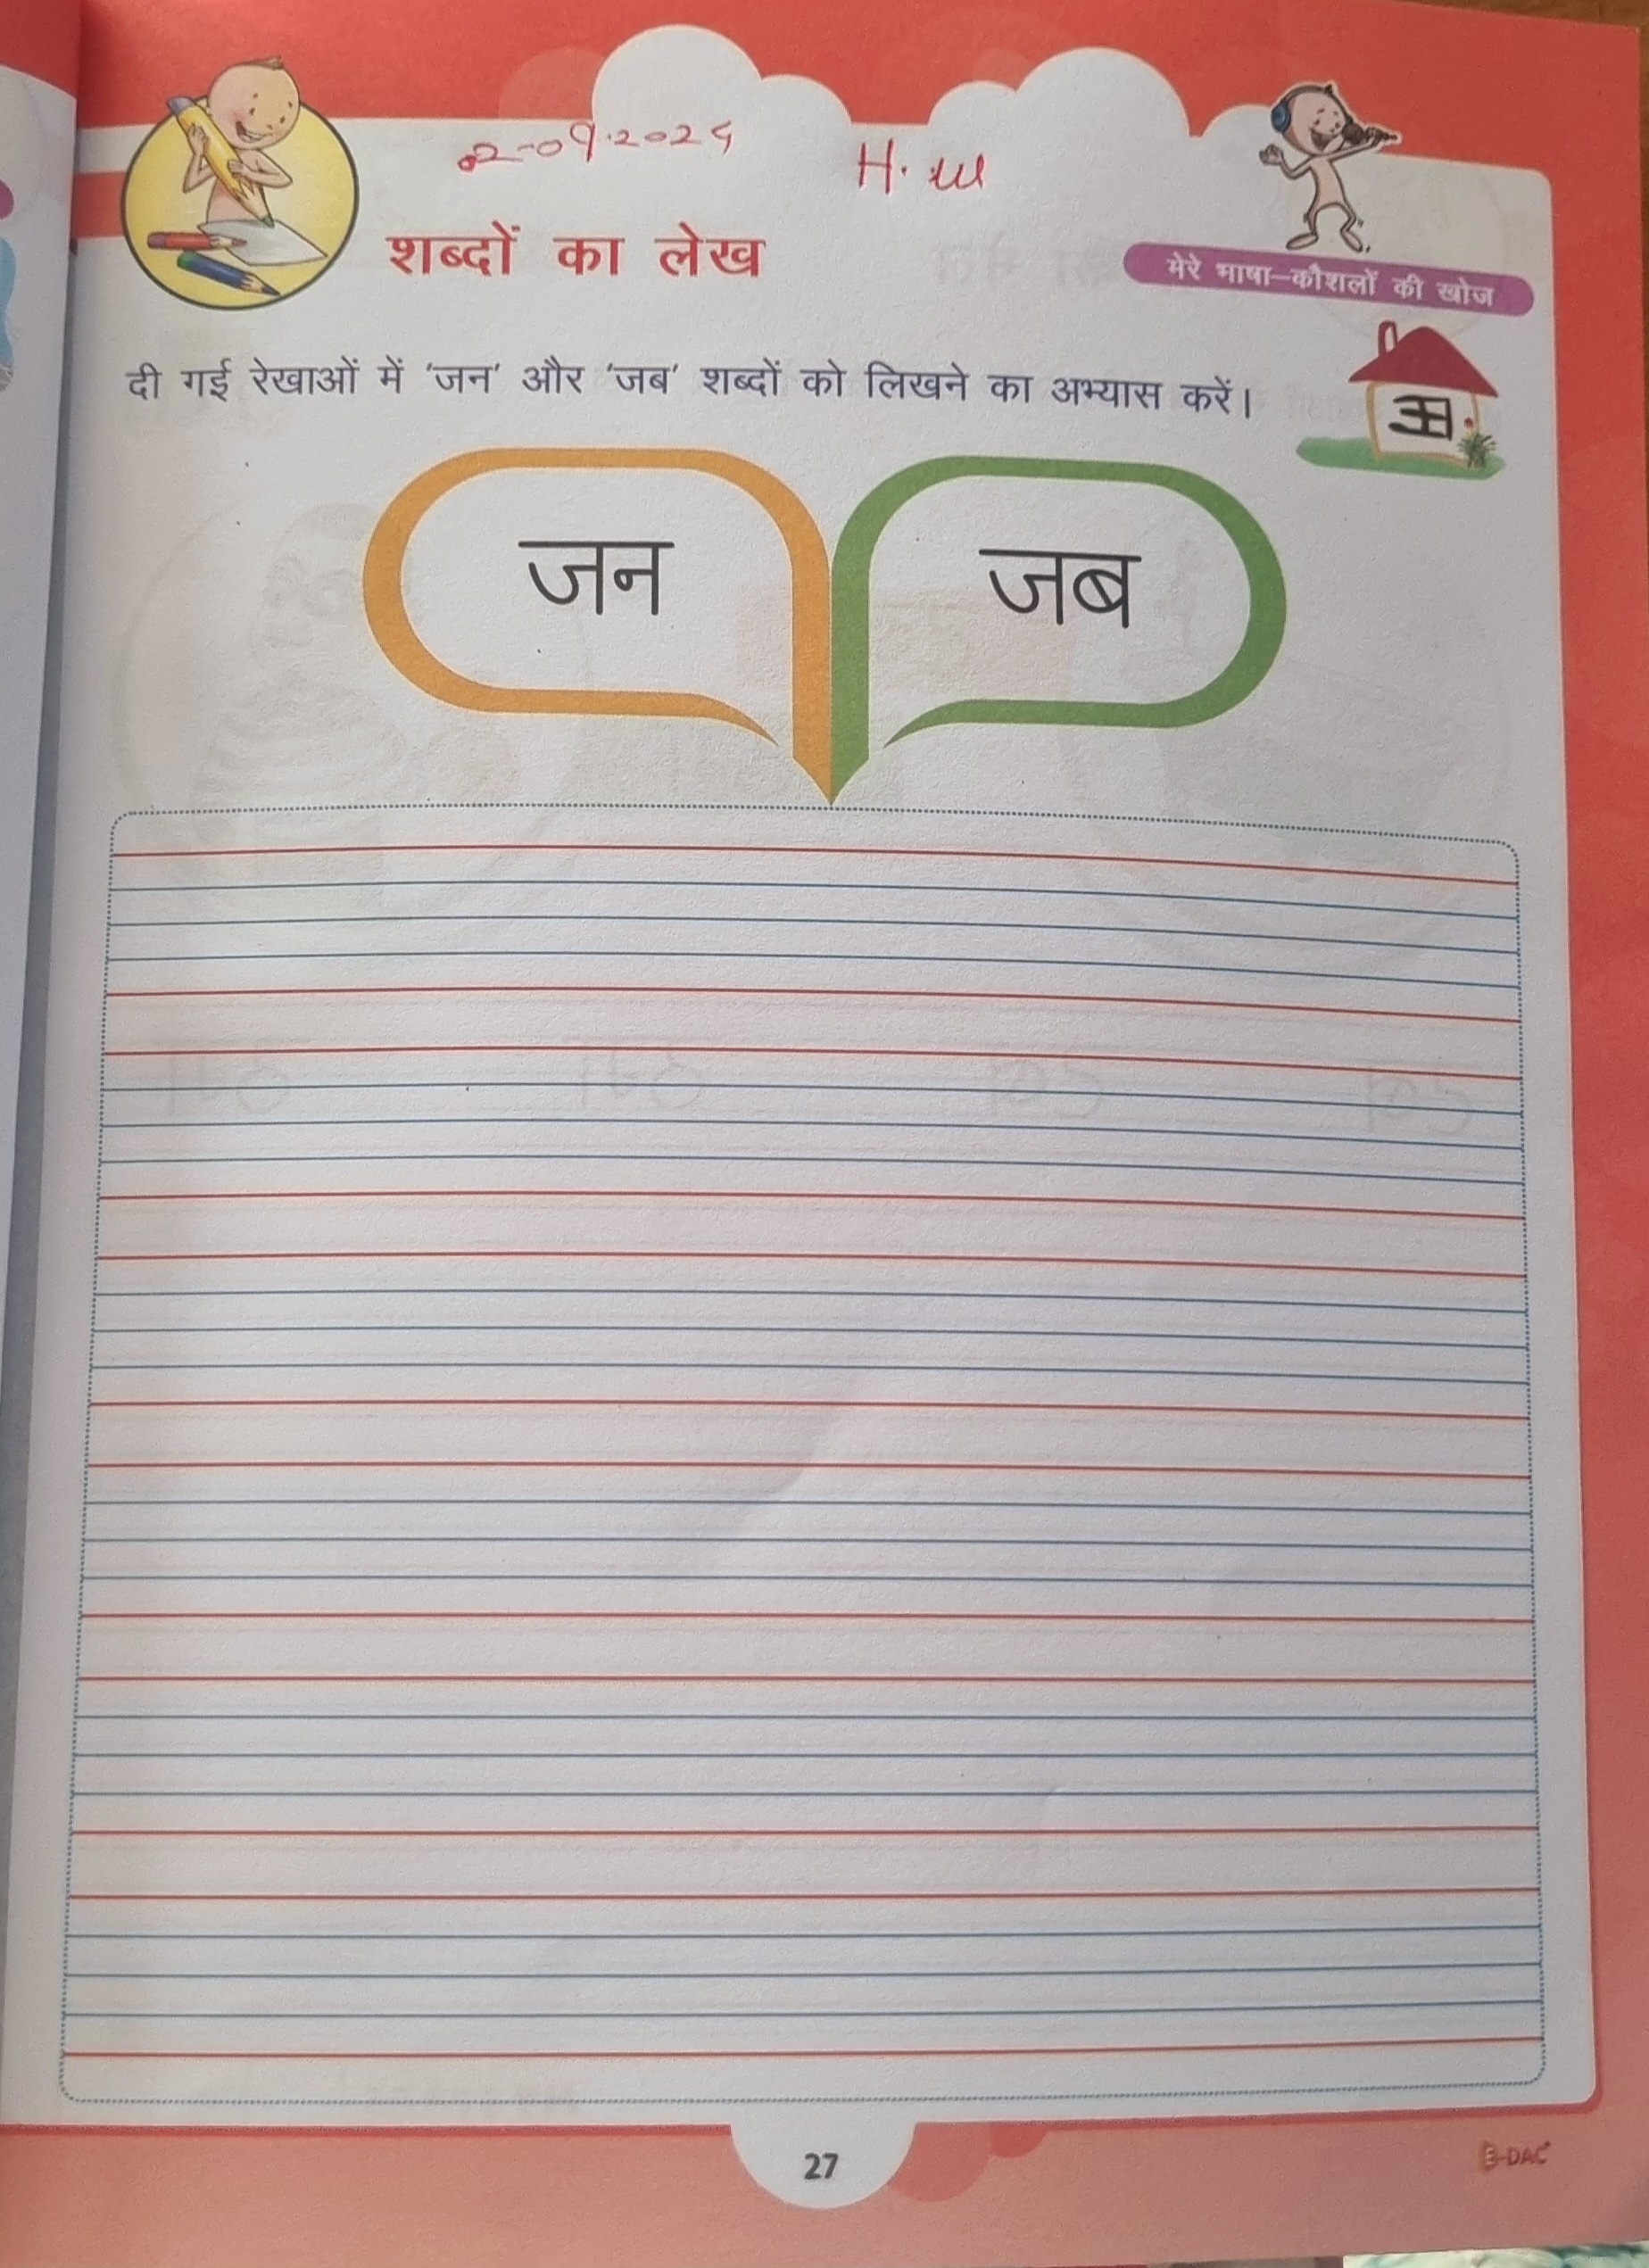 02-09-2025 H.W
शब्दों का लेख
मेरे भाषा-कौशलों की खोज
दी गई रेखाओं में ‘जन’ और ‘जब’ शब्दों को लिखने का अभ्यास करें।
जन जब
27
E-DAC